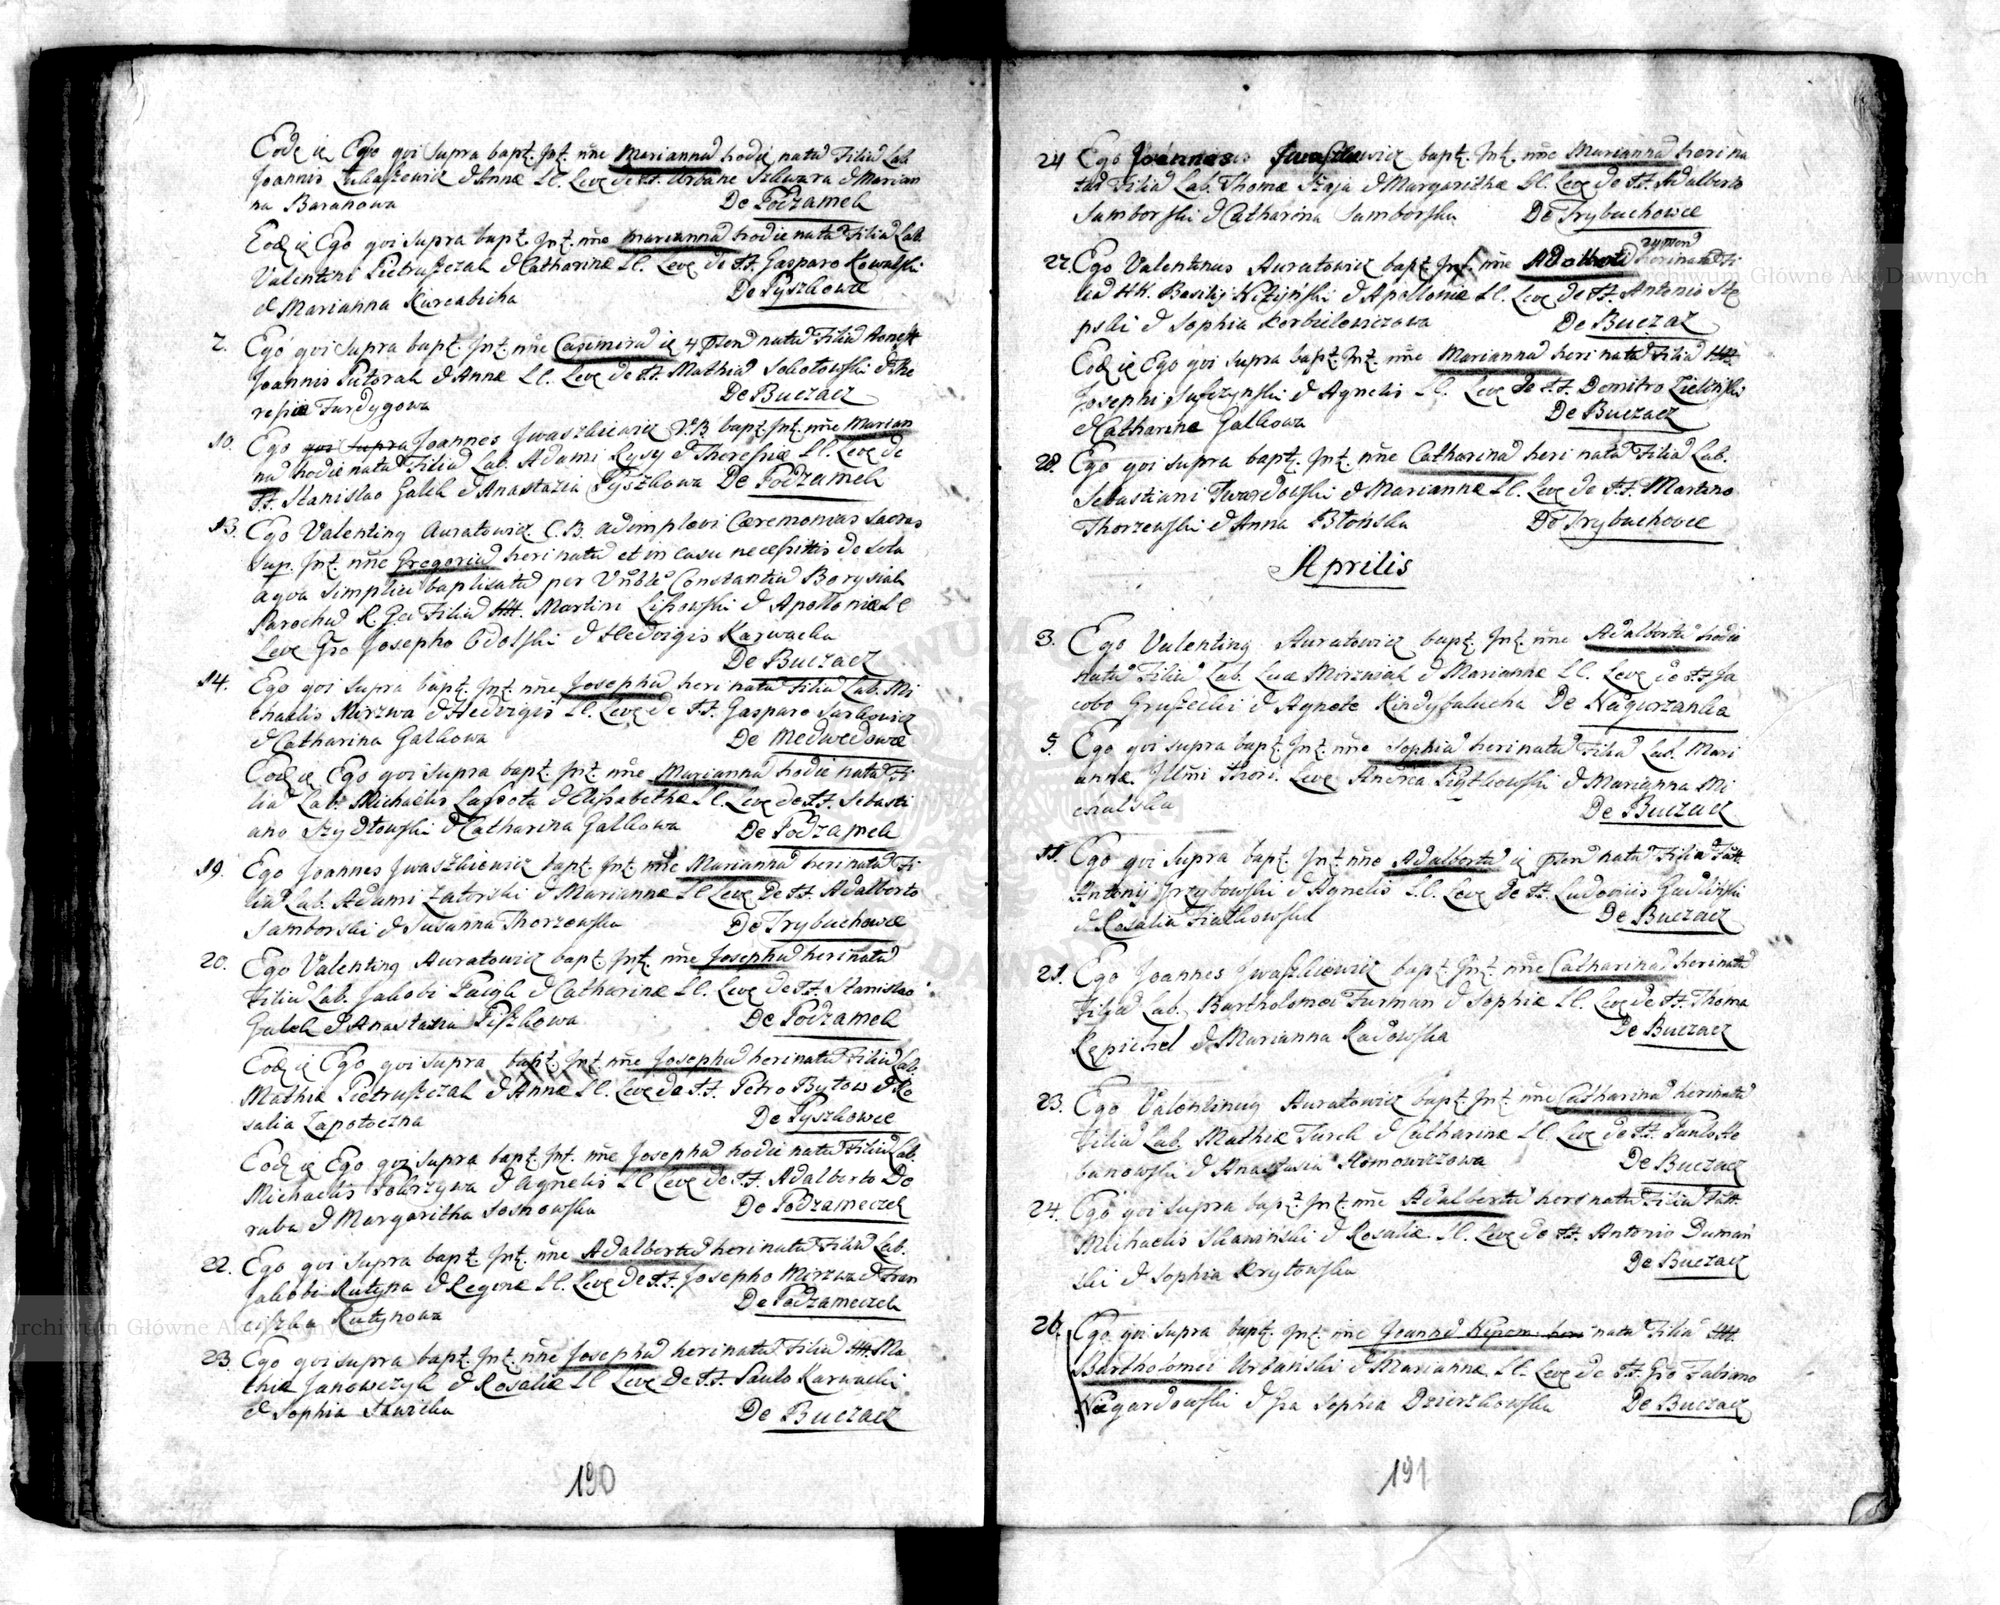 Eodę ię Ego qvi supra bapt. Int. nne Mariannā hodie natā Filiā Lab.
Joannis Lukaszewicz & Annæ LL. Levę de SS. Urbano Szkwara & Marian
na Baranowa De Podzamek
Eodę ię Ego qvi supra bapt. Int. nne Mariannā hodie natā Filiā Lab.
Valentini Pietruszczak & Catharinæ LL. Levę de SS. Gasparo Kowalski
& Marianna Kureabicha De Pyszkowce
7. Ego qvi supra bapt. Int. nne Casimirū ię 4 natū Filiū Honest
Joannis Putorak & Annæ LL. Levę de SS. Mathia Sokołowski & The
resia Furdygowa De Buczacz
10. Ego qvi supra Joannes Jwaszkiewicz V.B. bapt. Int. nne Marian
nā hodie natā Filiā Lab. Adami Łysy & Theresiæ LL. Levę de
SS. Stanislao Galek & Anastazia Pyszkowa De Podzamek
13. Ego Valenting Auratowicz C.B. adimplevi Cæremonias sacras
sup. Int. nne Gregoriū heri natū et in casu necessittis de sola
aqva simplici baptisatū per Constantiū Borysiak
Parochū R. Filiū HH. Martini Lisowski & Apolloniæ LL
Levę Gso Josepho Odolski & Hedvigis Karwacka
De Buczacz
14. Ego qvi supra bapt. Int. nne Josephū heri natū Filiū Lab. Mi
chaelis Mirzwa & Hedvigis LL. Levę de SS. Gasparo Surkowicz
& Catharina Galkowa De Medwedowce
Eodę ię Ego qvi supra bapt. Int. nne Mariannā hodie natā Fi
liā Lab. Michaelis Lassota & Elisabethæ LL. Levę de SS. Sebasti
ano Szydłowski & Catharina Galkowa De Podzamek
19. Ego Joannes Jwaszkiewicz bapt. Int. nne Mariannā heri natā Fi
liā Lab. Adami Zatorski & Mariannæ LL Levę De SS. Adalberto
Samborski & Susanna Thorzewska De Trybuchowce
20. Ego Valenting Auratowicz bapt. Int. nne Josephū heri natū
Filiū Lab. Jakobi & Catharinæ LL. Levę de SS. Stanislao
Galek & Anastazia Piszkowa De Podzamek
Eodę ię Ego qvi supra bapt. Int. nne Josephū heri natū Filiū Lab.
Mathiæ Pietruszczak & Annæ LL. Levę de SS. Petro Bytow & Ro
salia Zapotoczna De Pyszkowce
Eodę ię Ego qvi supra bapt. Int. nne Josephū hodie natū Filiū Lab.
Michaelis Pokrzywa & Agnetis LL Levę de SS. Adalberto Do
ruba & Margaritha Sosnowska De Podzameczek
22. Ego qvi supra bapt. Int. nne Adalbertū heri natū Filiū Lab.
Jakobi Kutyna & Reginæ LL. Levę De SS. Josepho Mirzwa & Fran
ciszka Kutynowa De Podzameczek
23. Ego qvi supra bapt. Int. nne Josephū heri natū Filiū HH. Ma
thiæ Janowczyk & Rosaliæ LL Levę De SS. Paulo Karwacki
& Sophia Sawicka De Buczacz
190
24 Ego Joannes Jwaszkiewicz bapt. Int. nne Mariannā heri na
tā Filiā Lab. Thomæ & Margarithæ LL. Levę de SS. Adalberto
Samborski & Catharina Samborska De Trybuchowce
27. Ego Valentinus Auratowicz bapt. Int. nne heri natū Fi
liū HH. Basilij Kiżyński & Apolloniæ LL. Levę de SS. Antonio Stę
pski & Sophia Korbielowiczowa De Buczacz
Eodę ię Ego qvi supra bapt. Int. nne Mariannā heri natā Filiā HH.
Josephi & Agnetis LL. Levę de SS. Demitro Zieliński
& Catharina Galkowa De Buczacz
28. Ego qvi supra bapt. Int. nne Catharinā heri natā Filiā Lab.
Sebastiani Twardowski & Mariannæ LL. Levę de SS. Martino
Thorzewski & Anna Błońska De Trybuchowce
Aprilis
3. Ego Valenting Auratowicz bapt. Int. nne Adalbertū hodie
natū Filiū Lab. Lucæ Morzwiak & Mariannæ LL. Levę de SS Ja
cobo Gruszecki & Agnete Kindyfalucha De Nagorzanka
5. Ego qvi supra bapt. Int. nne Sophiā heri natā Filiā Lab. Mari
annæ Illmi thori. Levę Andrea Piątkowski & Marianna Mi
chalska De Buczacz
11. Ego qvi supra bapt. Int. nne Adalbertū ię natū Filiū
Antonij Przybowski & Agnetis LL. Levę De SS. Ludovico Gudliński
& Rosalia Fiałkowska De Buczacz
21. Ego Joannes Jwaszkiewicz bapt. Int. nne Catharinā heri natā
Filiā Lab. Bartholomei Furman & Sophiæ LL. Levę de SS. Thoma
Kępichel & Marianna Radowska De Buczacz
23. Ego Valentinug Auratowicz bapt. Int. nne Catharinā heri natā
Filiā Lab. Mathiæ Turek & Catharinæ LL. Levę de SS. Paulo He
banowski & Anastasia De Buczacz
24. Ego qvi supra bapt. Int. nne Adalbertū heri natū Filiū
Michaelis Sławiński & Rosaliæ LL. Levę de SS. Antonio Dumań
ski & Sophia Krytowska De Buczacz
26. Ego qvi supra bapt. Int. nne Joannē Nepom. heri natū Filiū HH.
Bartholomei Urbański & Mariannæ LL. Levę de SS. Gso Fabiano
Nagordowski & Gsa Sophia Dzierzkowska De Buczacz
191